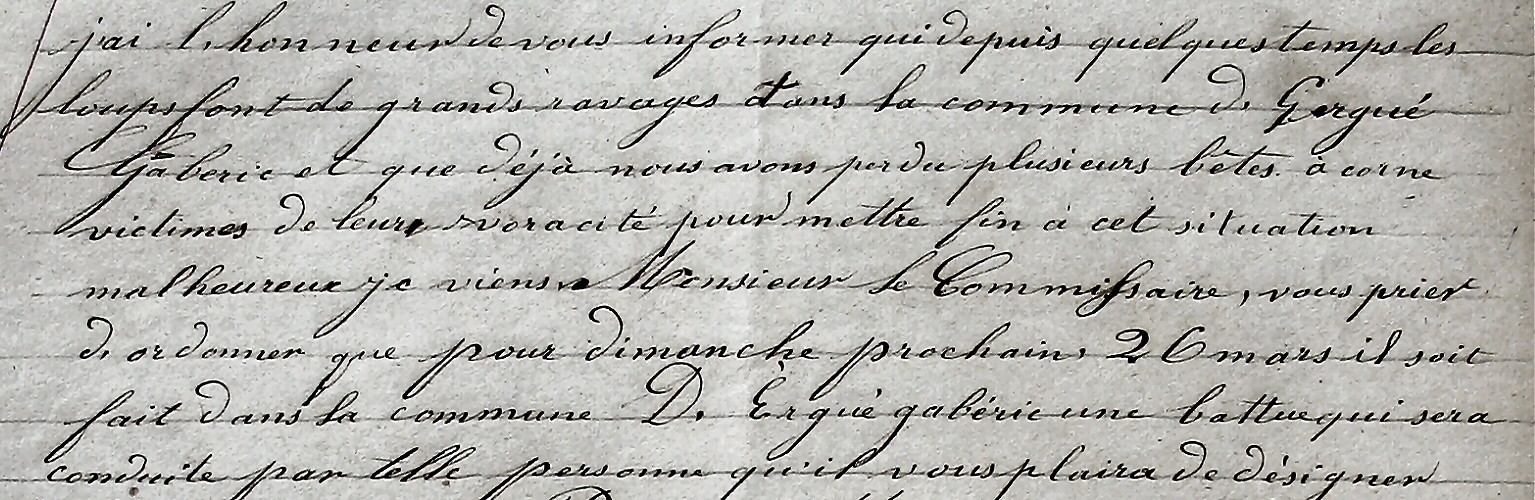 j'ai l'honneur de vous informer qui depuis quelques temps les
loups font de grands ravages dans la commune d. Gergué
Gabéric et que déjà nous avons perdu plusieurs bêtes à corne
victimes de leurs voracité pour mettre fin à cet situation
malheureux je viens Monsieur le Commissaire, vous prier
d. ordonner que pour dimanche prochain, 26 mars il soit
fait dans la commune D. Ergué gabéric une battue qui sera
conduite par telle personne qu'il vous plaira de désigner